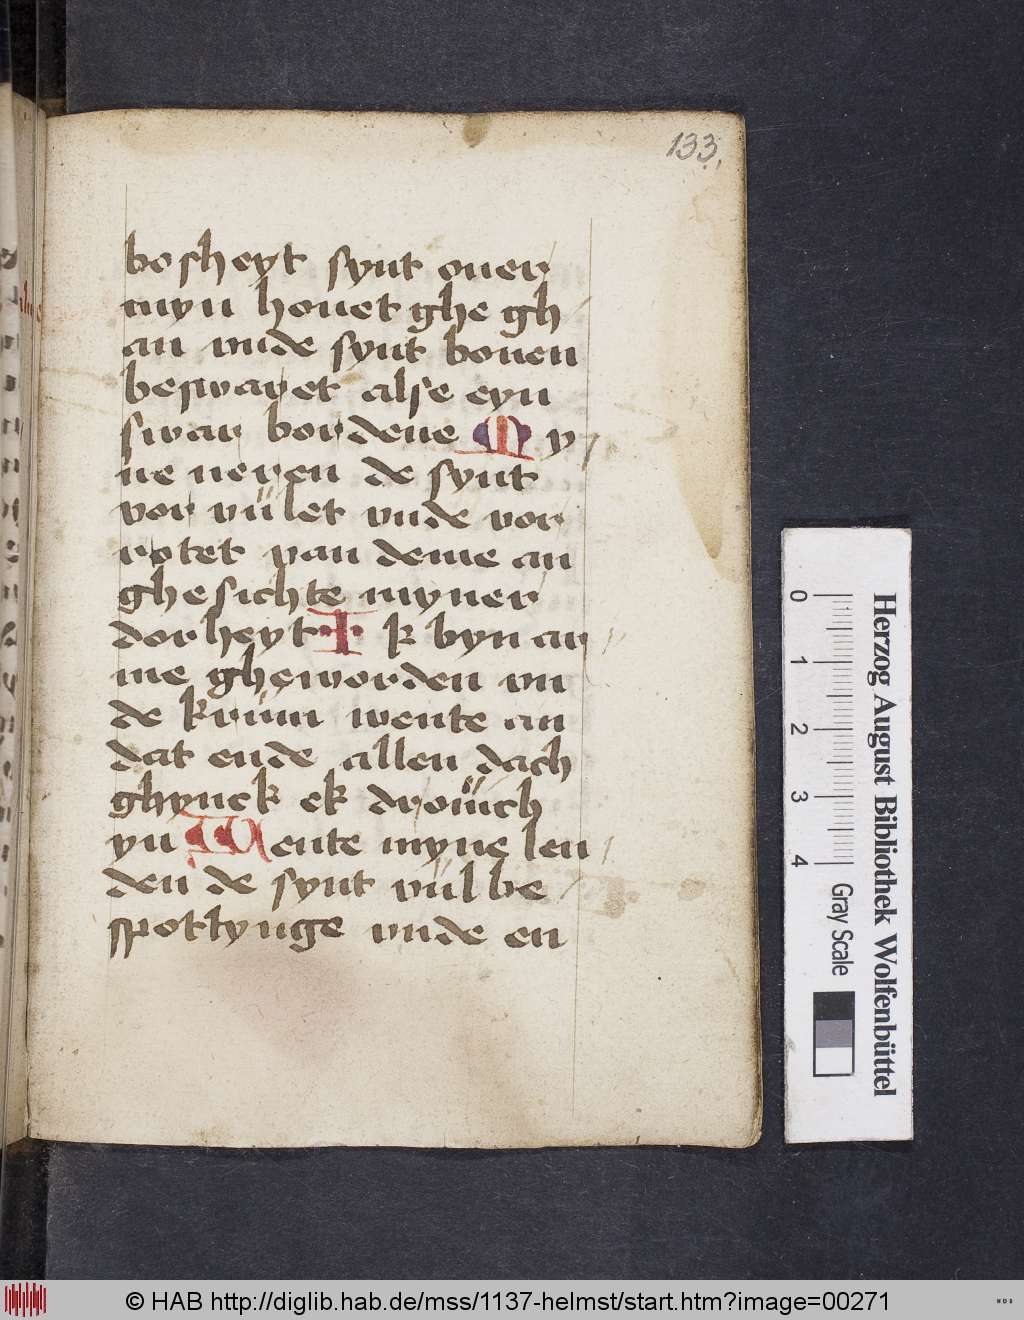 133.
bosheyt synt ouer
myn houet ghe gh
an vnde synt bouen
beswaret alse eyn
swar bordene My
ne neren de synt
vor vület vnde vor
rotet van deme an
ghesichte myner
dorheyt Ik byn ar
me gheworden vn
de krüm wente an
dat ende allen dach
ghynck ek droüich
yn Wente myne len
den de synt vül be
spottynge vnde en
Herzog August Bibliothek Wolfenbüttel
0 1 2 3 4 Gray Scale
© HAB http://diglib.hab.de/mss/1137-helmst/start.htm?image=00271